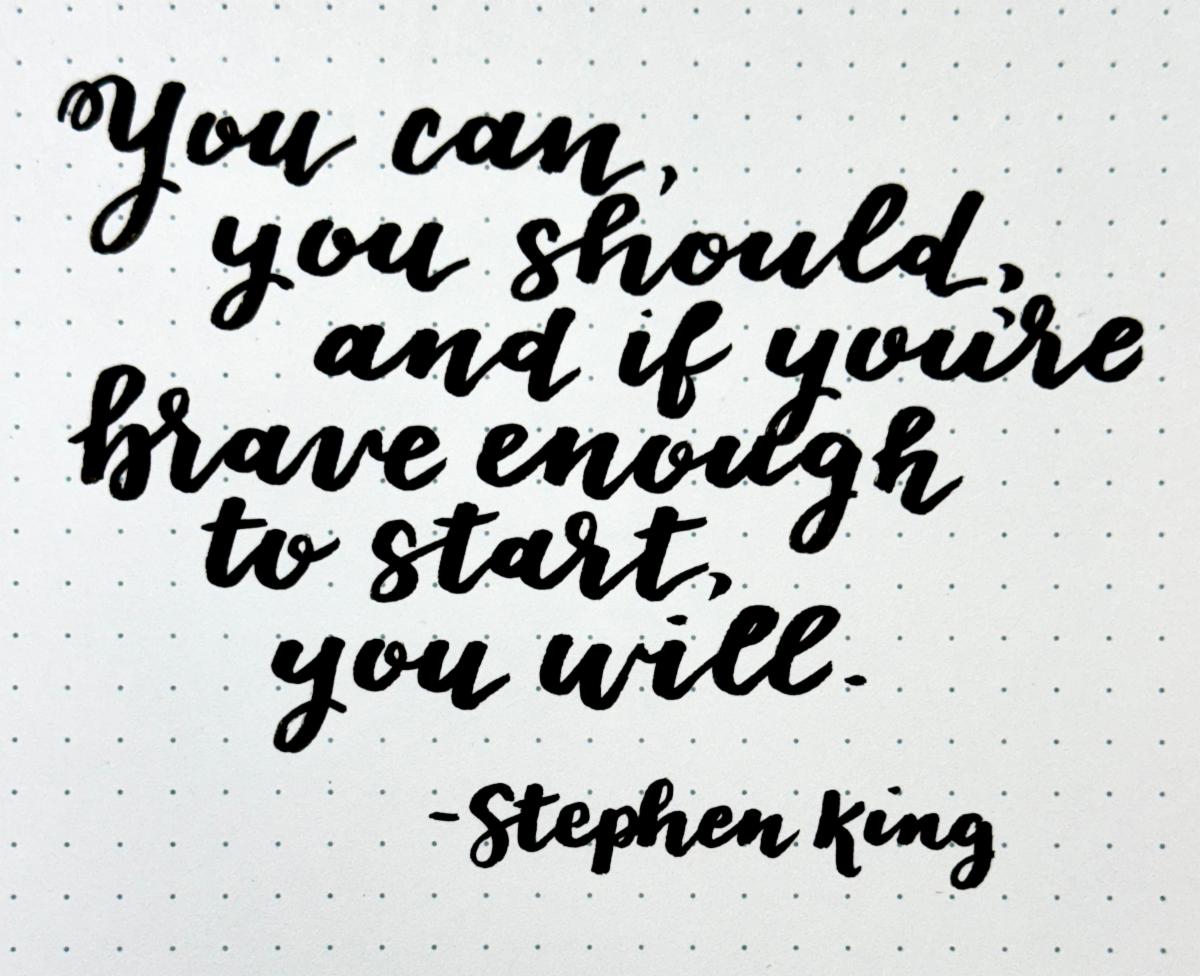 You can,
you should,
and if you're
brave enough
to start,
you will.
-Stephen King